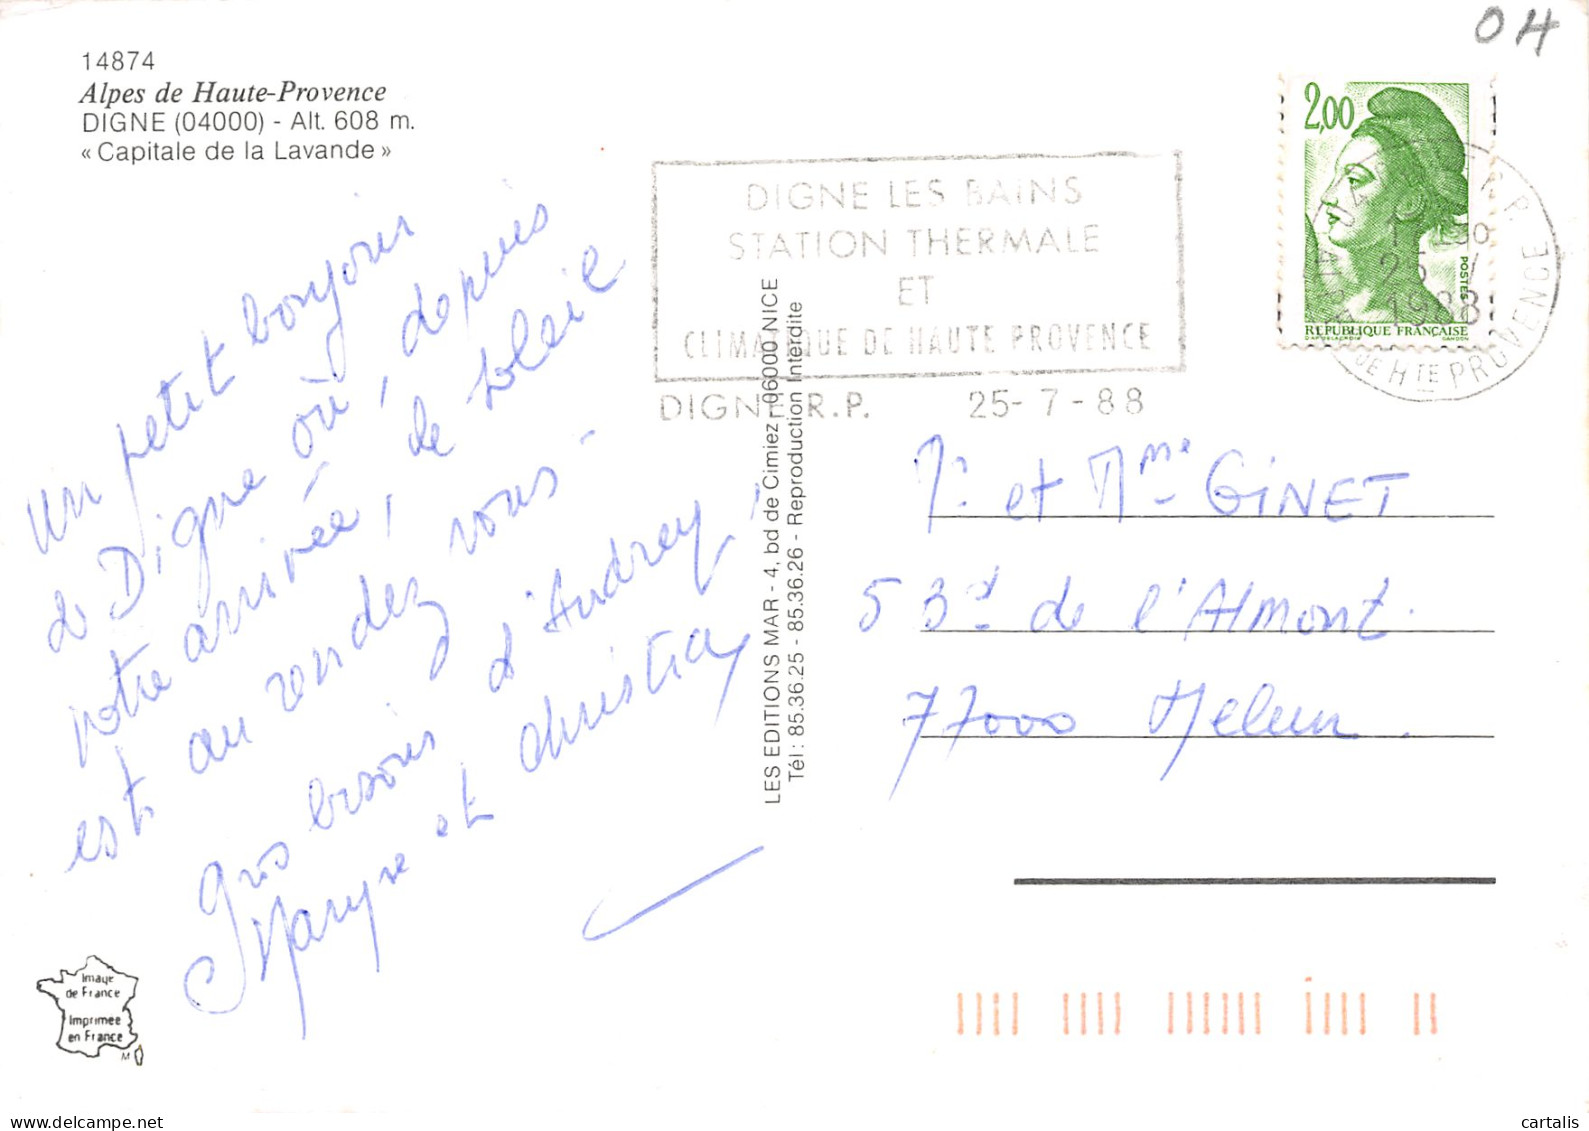 14874
Alpes de Haute-Provence
DIGNE (04000) - Alt. 608 m.
« Capitale de la Lavande »
04
2,00
POSTES
REPUBLIQUE FRANÇAISE
D'APRES DELACROIX GANDON
25
1988
DE HTE PROVENCE
DIGNE LES BAINS
STATION THERMALE
ET
CLIMATIQUE DE HAUTE PROVENCE
DIGNE R.P. 25-7-88
un petit bonjour
de Digne où, depuis
notre arrivée, le soleil
est au rendez vous -
Gros bisous d'Audrey,
Maryse et Christian
LES EDITIONS MAR - 4, bd de Cimiez - 06000 NICE
Tél : 85.36.25 - 85.36.26 - Reproduction Interdite
Mr et Mme GINET
53 de l'Almont.
77000 Melun.
Image
de France
Imprimée
en France
M
cartalis